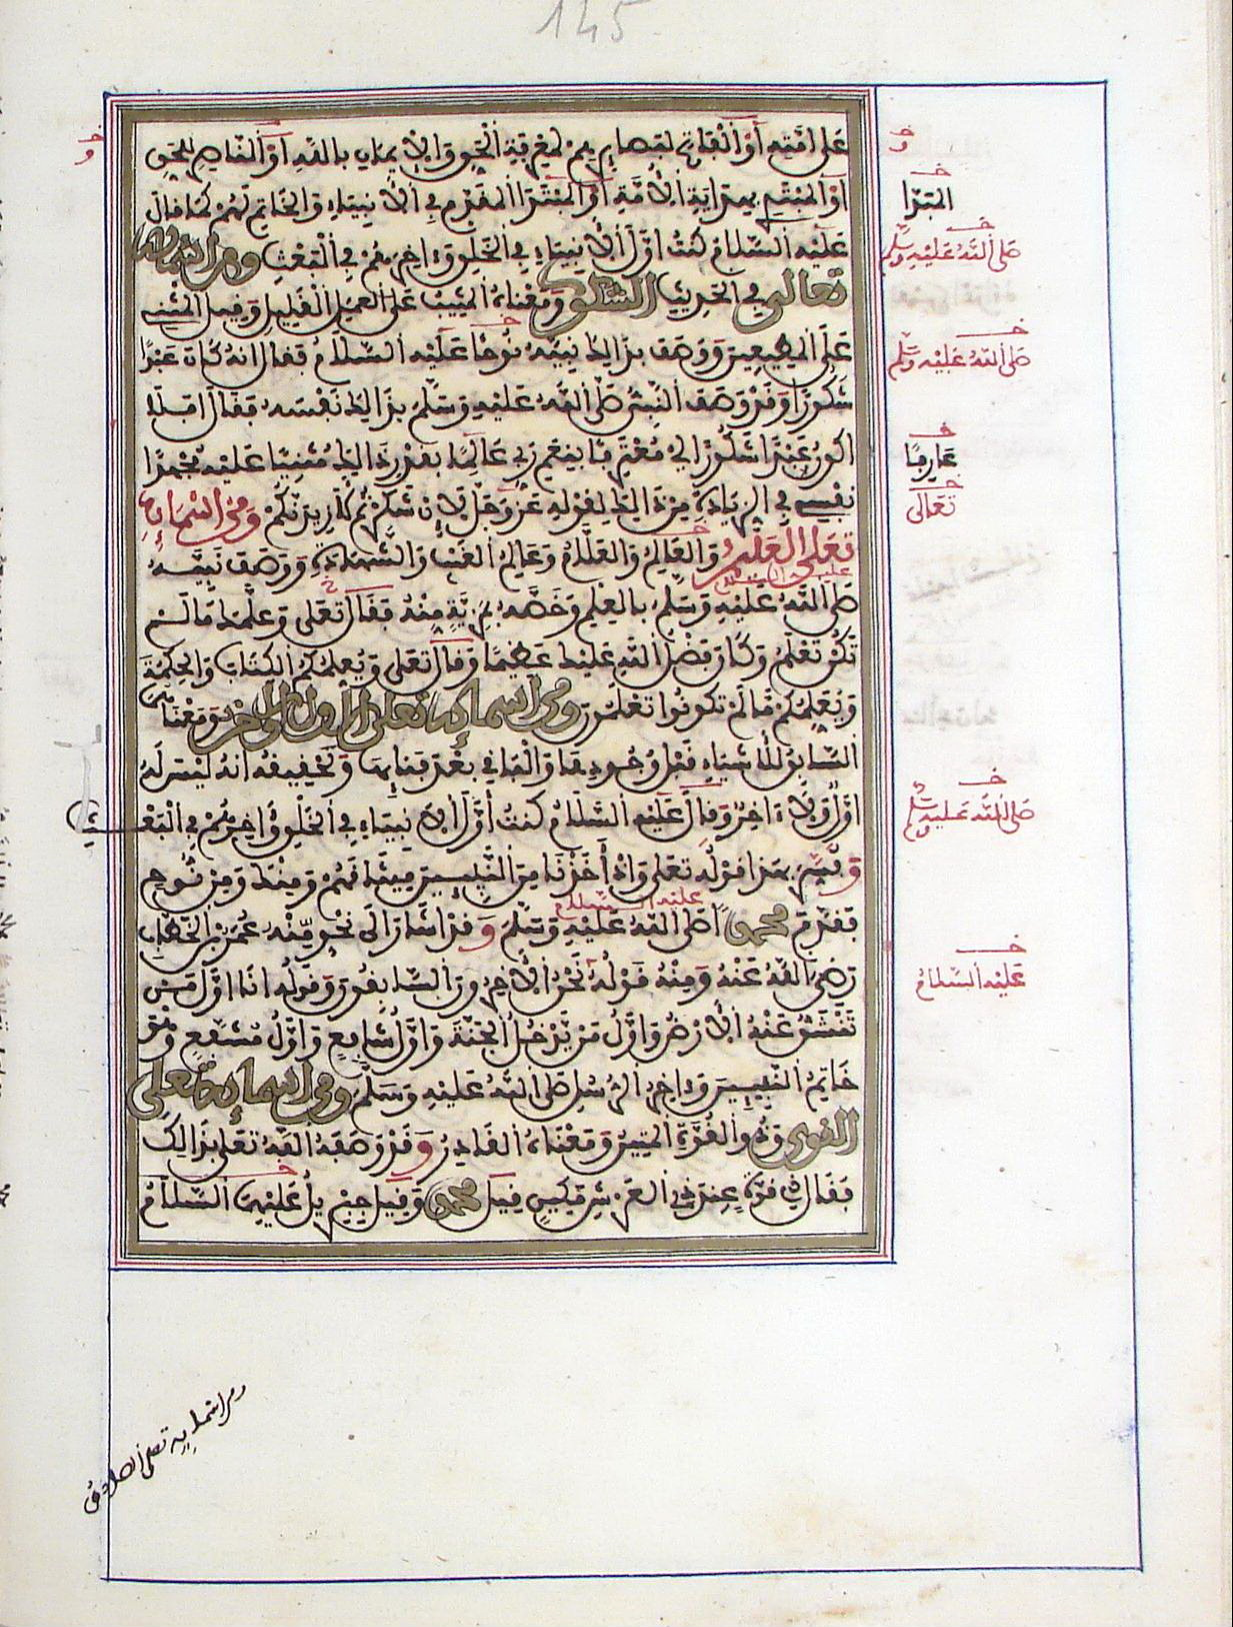 145
على امته أو الفاتح لبصايرهم لمعرفة الحق والايمان بالله أو الناصر للحق
أو المبتدئ بهداية الأمة أو المبتدأ المقدم في الأنبياء والخاتم لهم كما قال
عليه السلام كنت أول الأنبياء في الخلق وءاخرهم في البعث ومن اسمائه
تعالى في الحديث الشكور ومعناه المثيب على العمل القليل وقيل المثني
على المطيعين ووصف بذالك نبيه نوحا عليه السلام فقال انه كان عبدا
شكورا وقد وصف النبي صلى الله عليه وسلم بذالك نفسه فقال أفلا
اكون عبدا شكورا اي معترفا بنعم ربي عالما بقدر ذالك مثنيا عليه مجهدا
نفسي في الزيادة من ذالك لقوله عز وجل لئن شكرتم لأزيدنكم ومن اسمائه
تعلى العليم والعالم والعلام وعالم الغيب والشهادة ووصف نبيه
عليه السلام
صلى الله عليه وسلم بالعلم وخصه بمزية منه فقال تعلى وعلمك ما لم
تكن تعلم وكان فضل الله عليك عظيما وقال تعلى ويعلمكم الكتاب والحكمة
ويعلمكم ما لم تكونوا تعلمون ومن اسمائه تعلى الأول والآخر ومعناهما
السابق للأشياء قبل وجودها والباقي بعد فنائها وتحقيقه انه ليس له
أول ولا ءاخر وقال عليه السلام كنت أول الأنبياء في الخلق وءاخرهم في البعث
وفسر بهذا قوله تعلى واذ أخذنا من النبيـين ميثاقهم ومنك ومن نوح
عليه السلام
فقدم محمدا صلى الله عليه وسلم وقد اشار الى نحو منه عمر بن الخطاب
رضي الله عنه ومنه قوله نحن الآخرون السابقون وقوله انا اول من
تنشق عنه الارض واول من يدخل الجنة واول شافع واول مشفع وهو
خاتم النبيـين وءاخر الرسل صلى الله عليه وسلم ومن اسمائه تعلى
القوي وذو القوة المتين ومعناه القادر وقد وصفه الله تعلى بذالك
فقال ذي قوة عند ذي العرش مكين قيل محمد وقيل جبريل عليهما السلام
المبدا
صلى الله عليه وسلم
صلى الله عليه وسلم
عارفا
تعالى
صلى الله عليه وسلم
عليه السلام
ومن اسمائه تعلى الصادق